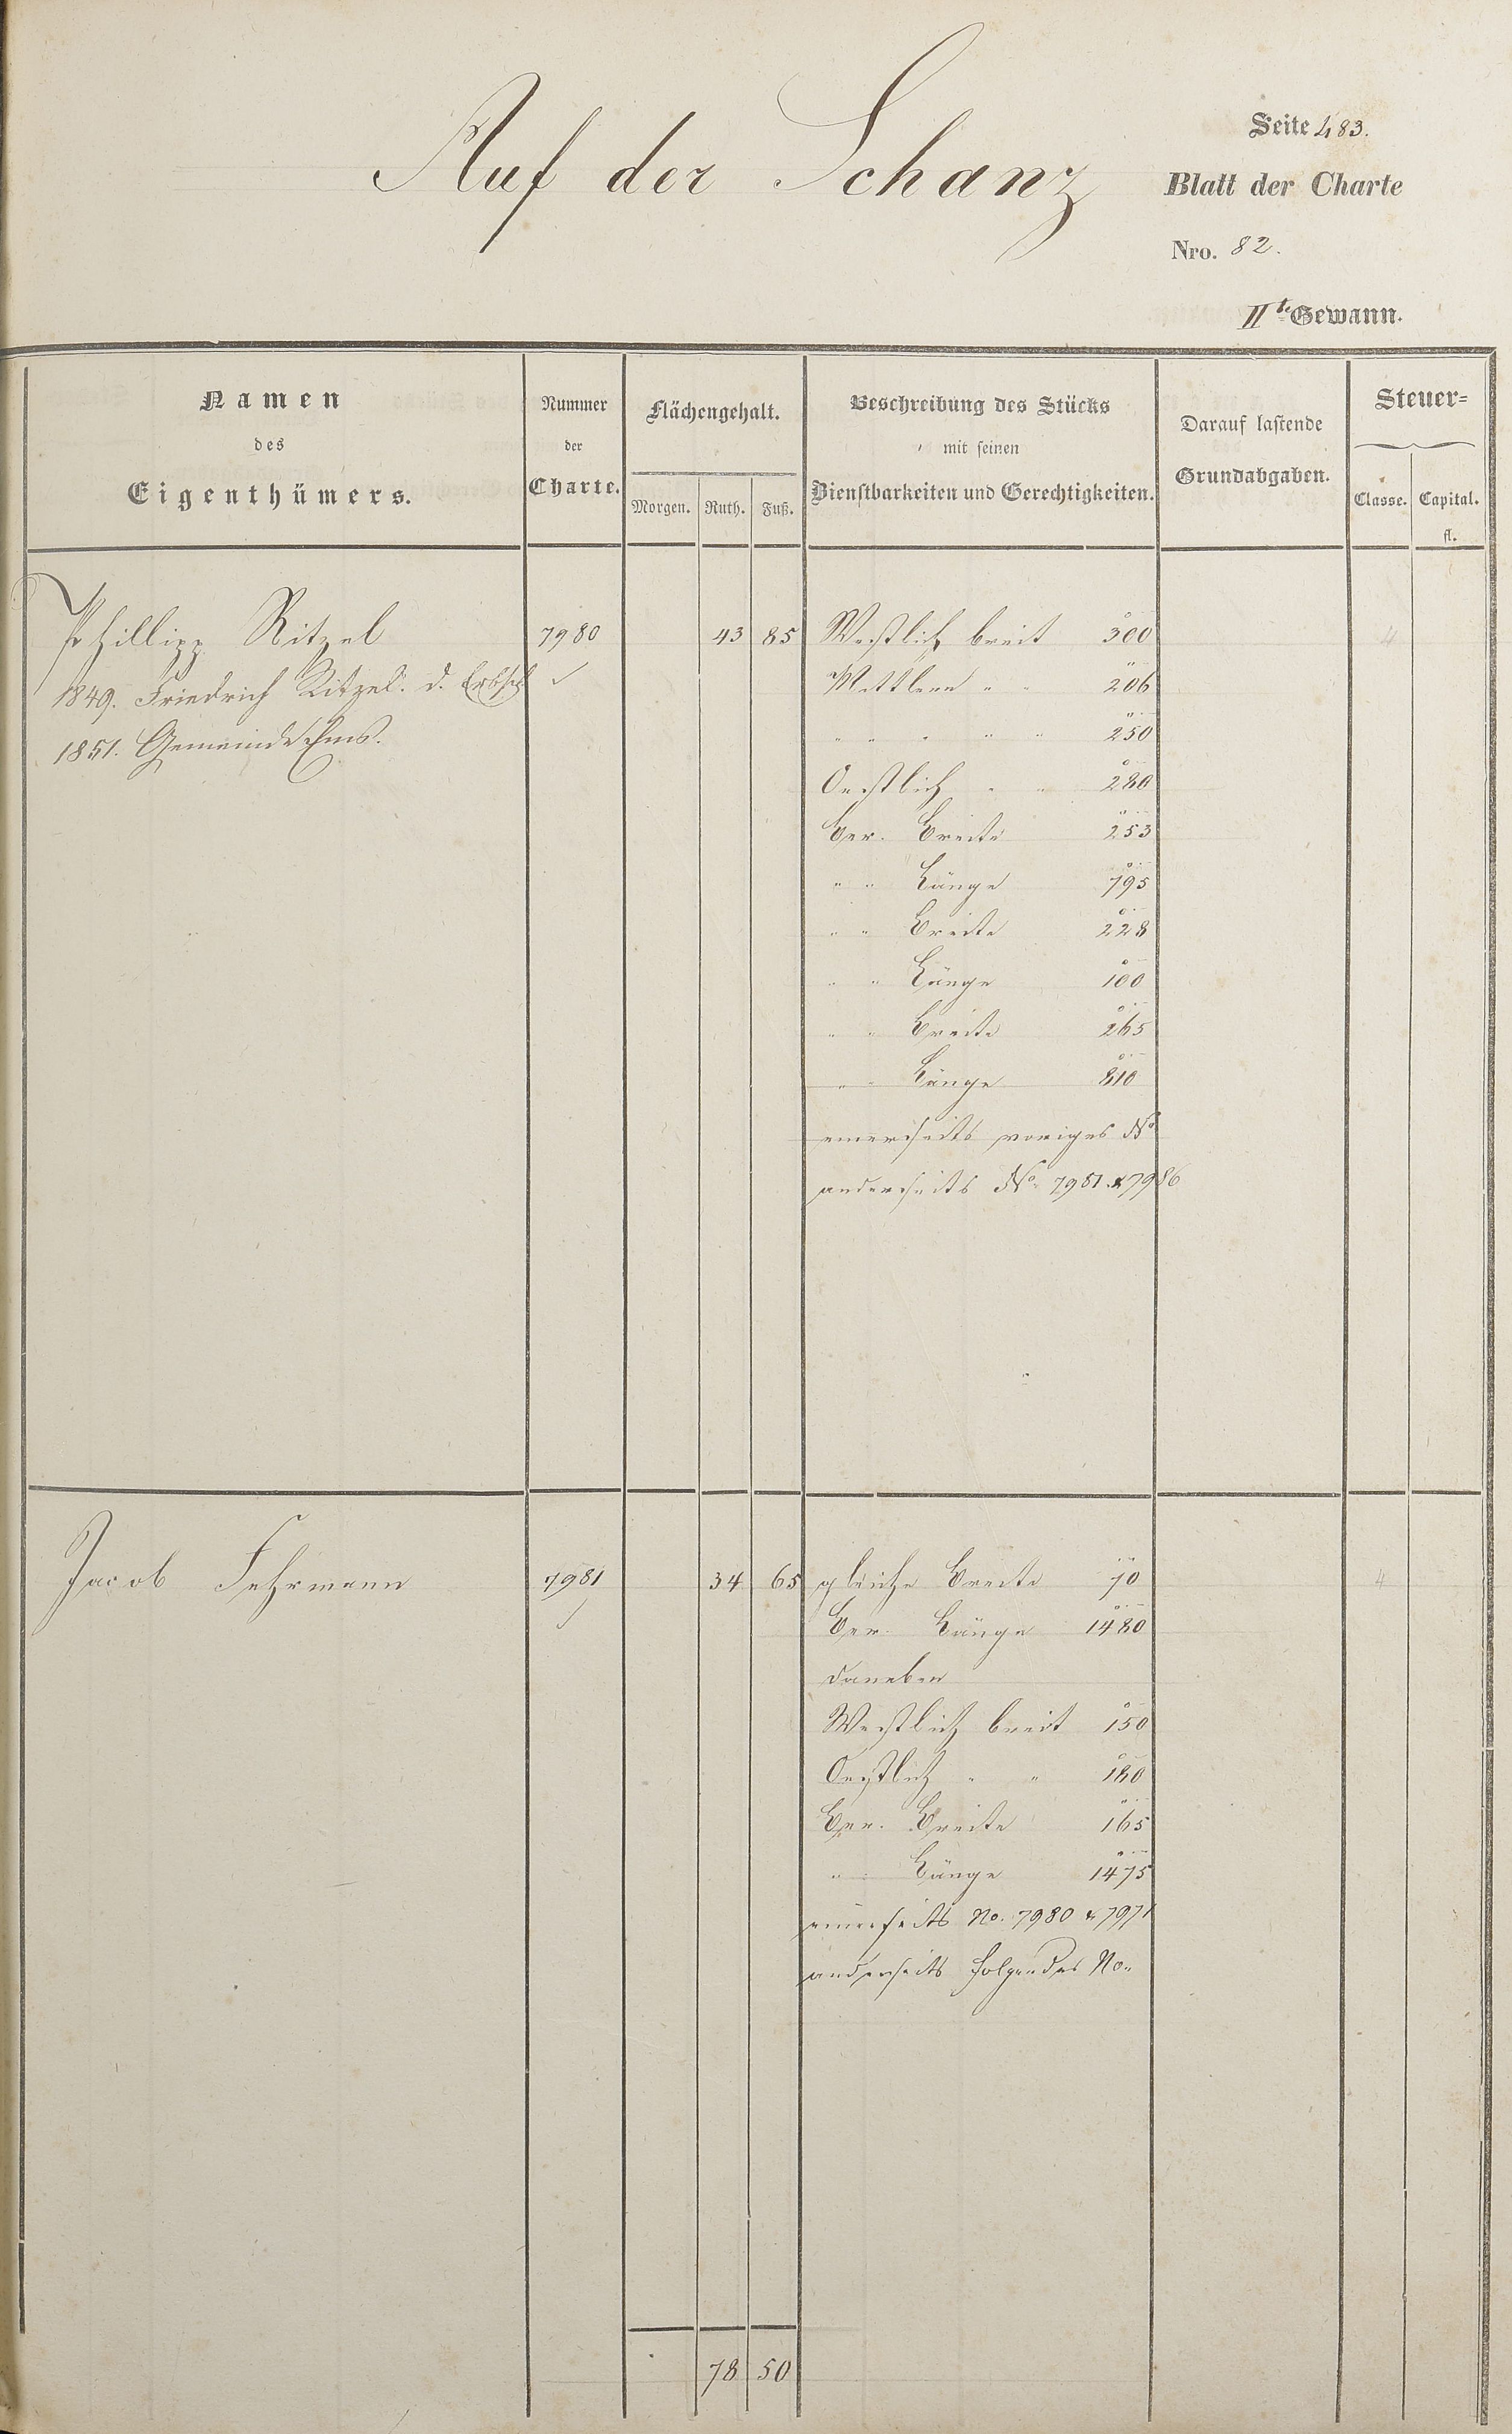 Auf der Schanz
Seite 483.
Blatt der Charte
Nro. 82.
IIte Gewann.
Namen
des
Eigenthümers.
Nummer
der
Charte.
Flächengehalt.
Morgen. Ruth. Fuß.
Beschreibung des Stücks
mit seinen
Dienstbarkeiten und Gerechtigkeiten.
Darauf lastende
Grundabgaben.
Steuer=
Classe. Capital.
fl.
Phillipp Ritzel 7980 43 85 Westlich breit 300 4
1849. Friedrich Ritzel. d. Erbsch ✓ Mittlere " " 206
1851. Gemeinde Ems. " " " " " 250
Oestlich " " 280
ber. Breite 253
" " Länge 795
" " Breite 228
" " Länge 100
" " Breite 265
" " Länge 810
einerseits voriges No
anderseits No. 7981. & 7986
Jacob Fehrmann 7981 34 65 gleiche Breite 70 4
✓ ber. Länge 1480
daneben
Westlich breit 150
Oestlich " " 180
ber. Breite 165
" " Länge 1475
einerseits No. 7980 & 7971
anderseits folgendes No.
78 50